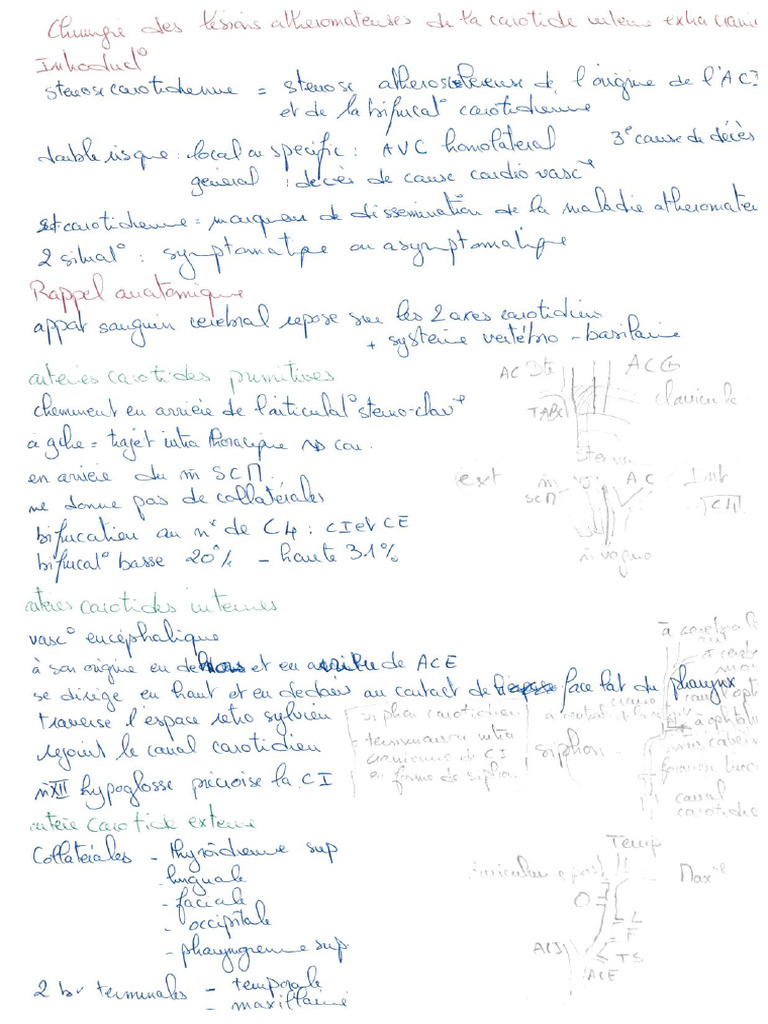 Chirurgie des lésions athéromateuses de la carotide interne extra crani
Introduct°
stenose carotidienne = stenose atherosclereuse de l'origine de l'ACI
et de la bifurcat° carotidienne
double risque : local ou specific : AVC homolateral 3e cause de décès
général : décès de cause cardio vascre
st carotidienne = marqueur de dissémination de la maladie atheromate
2 situat° : symptomatique ou asymptomatique
Rappel anatomique
apport sanguin cerebral repose sur les 2 axes carotidiens
+ système vertébro-basilaire
arteries carotides primitives
AC Dte ACG
cheminent en arrière de l'articulat° sterno-clavre
clavicule
TABC
à gche = trajet intra thoracique cou.
en arriere du m SCM
ext AC Int
SCM
C4
ne donne pas de collatérales
bifurcation au nv de C4 : CI et CE
bifurcat° basse 20% - haute 31%
n vague
arteries carotides internes
vasc° encéphalique
à son origine en dehors et en arrière de ACE
se dirige en haut et en dedans au contact de face lat du pharynx
traverse l'espace retro sylvien
rejoint le canal carotidien
siphon carotidien
terminaison intra
cranienne de CI
en forme de siphon.
siphon
canal
carotidien
n XII hypoglosse précroise la CI
arterie carotide externe
Collatérales - thyroidienne sup
- linguale
- faciale
- occipitale
- pharyngienne sup
2 br terminales - temporale
- maxillaire
Temp
auriculaire post
Maxre
O
L
F
TS
ACI
ACE